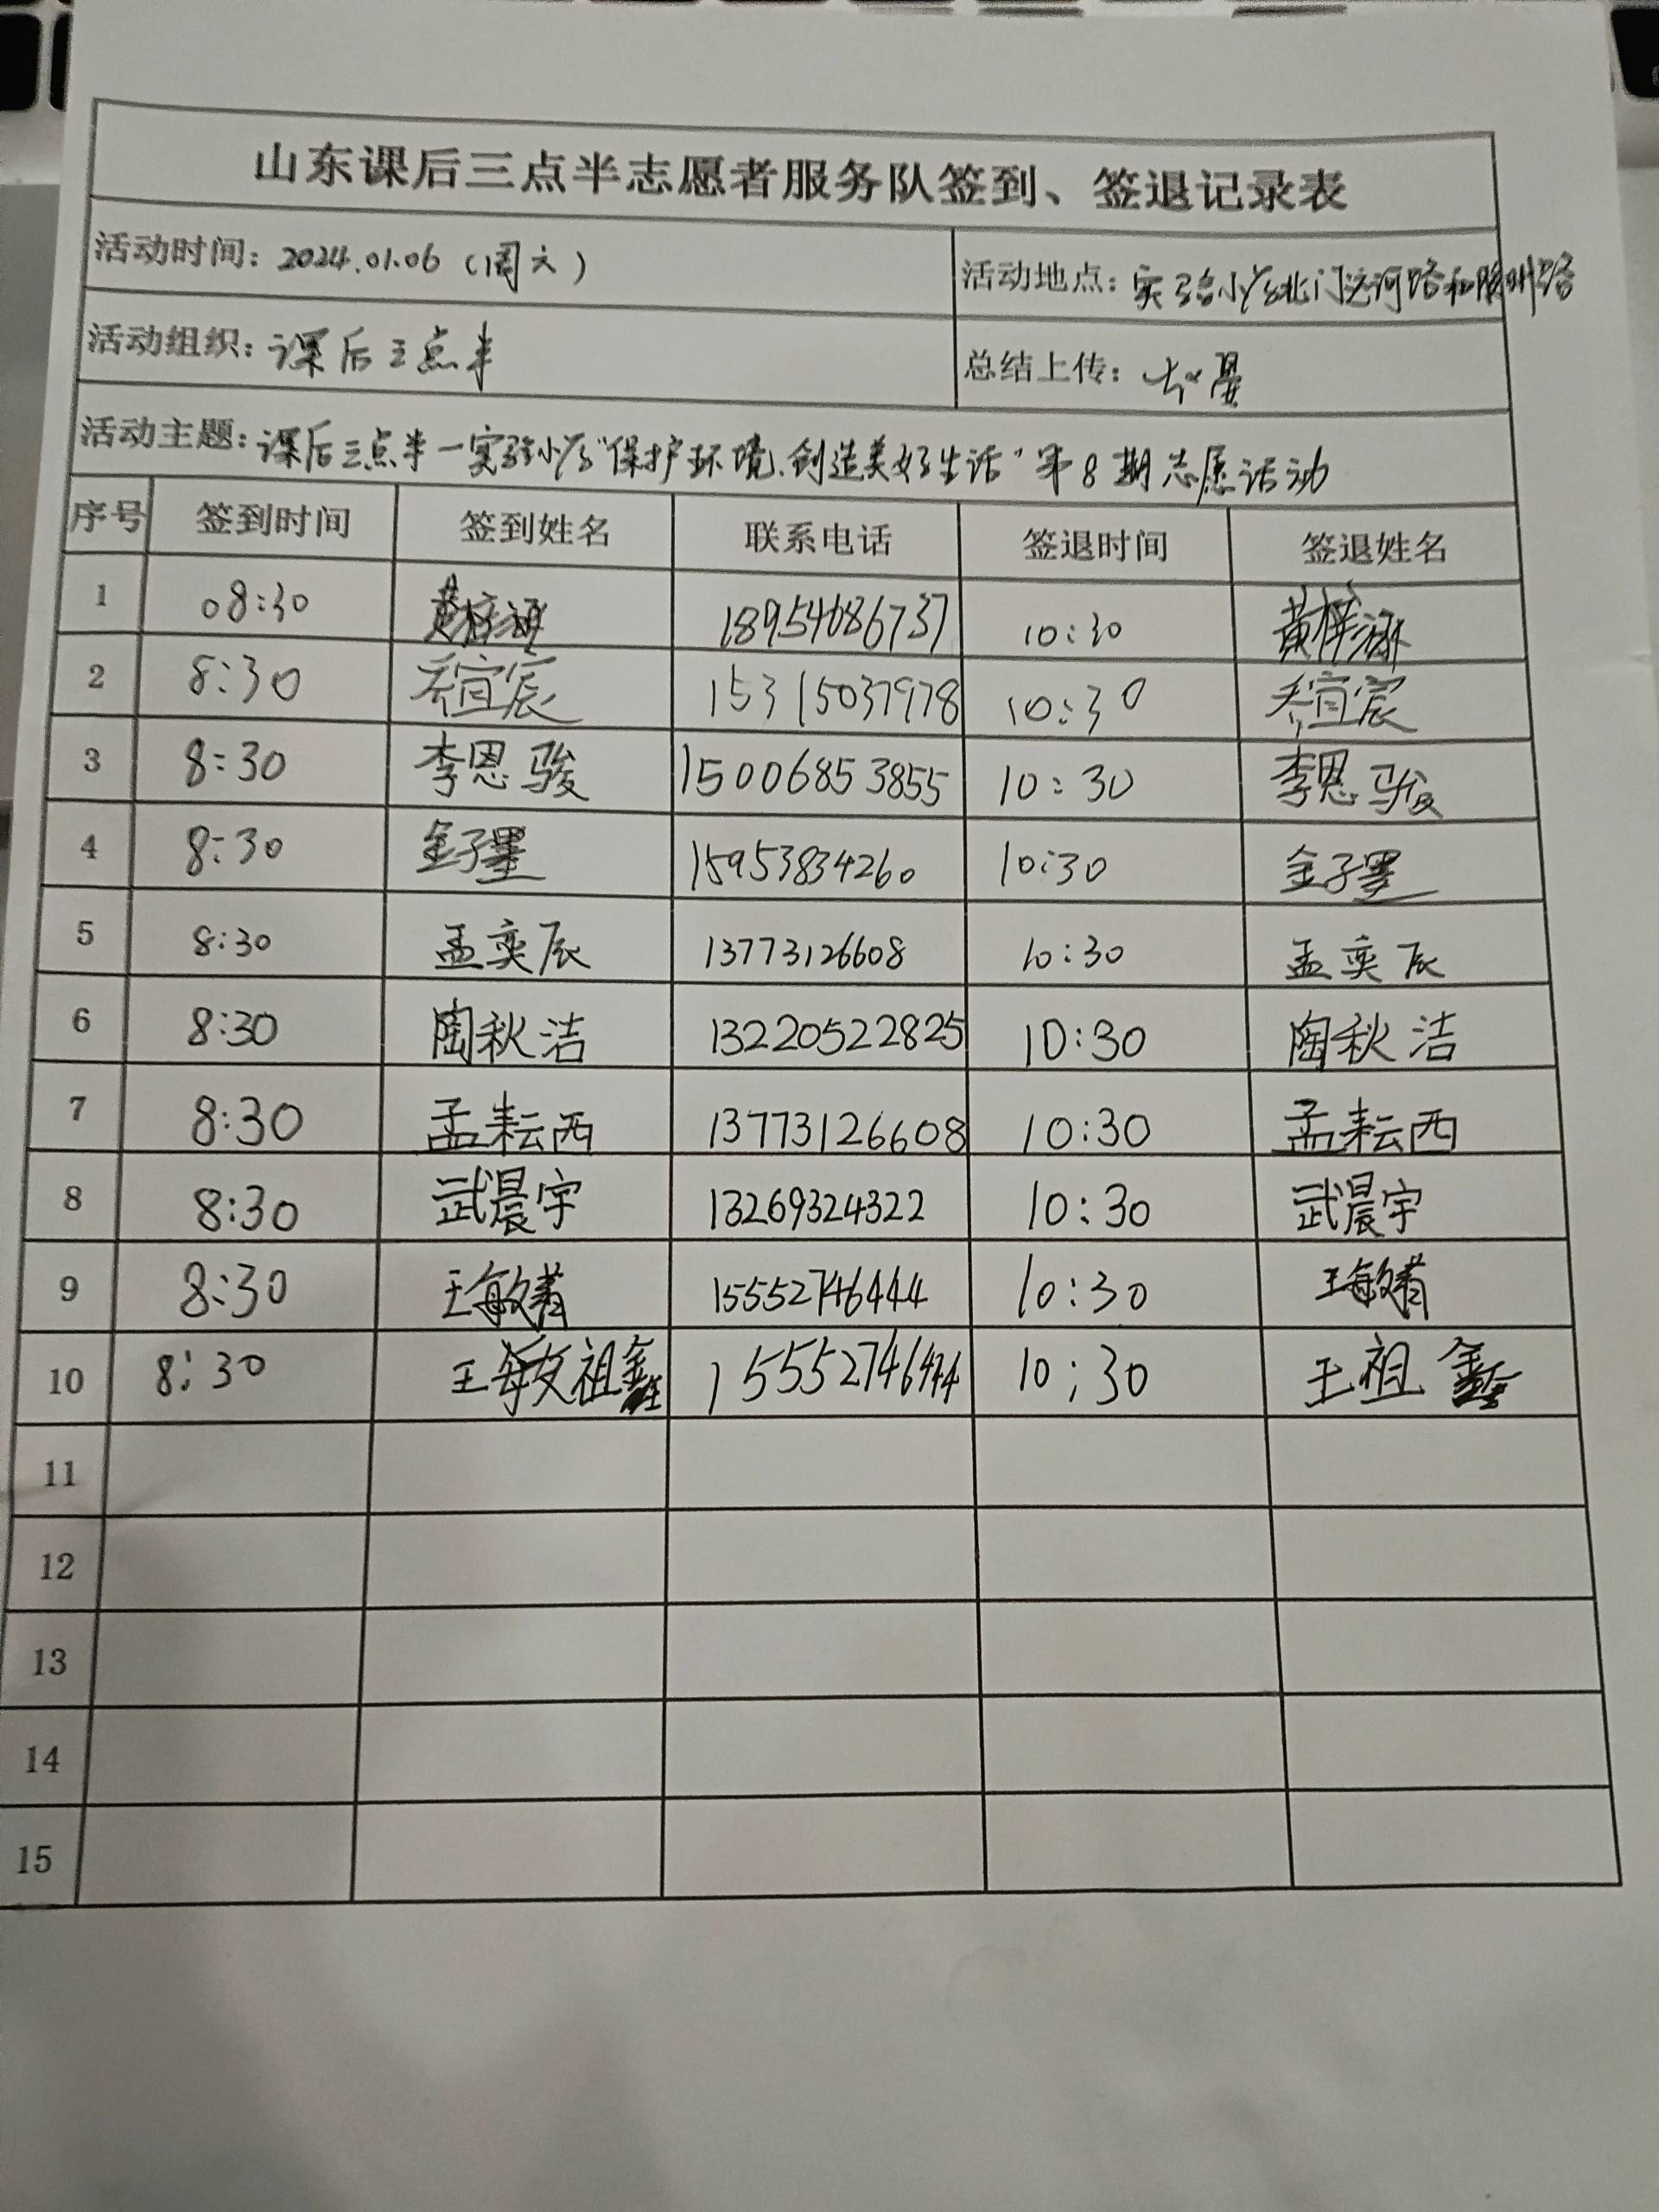 山东课后三点半志愿者服务队签到、签退记录表
活动时间：2024.01.06（周六） 活动地点：实验小学北门运河路和胶州路
活动组织：课后三点半 总结上传：
活动主题：课后三点半一实验小学“保护环境、创造美好生活”第8期志愿活动
序号 签到时间 签到姓名 联系电话 签退时间 签退姓名
1 08:30 黄梓涵 18954686737 10:30 黄梓涵
2 8:30 乔宜宸 15315037978 10:30 乔宜宸
3 8:30 李恩骏 15006853855 10:30 李恩骏
4 8:30 金子墨 15953834260 10:30 金子墨
5 8:30 孟奕辰 13773126608 10:30 孟奕辰
6 8:30 陶秋洁 13220522825 10:30 陶秋洁
7 8:30 孟耘西 13773126608 10:30 孟耘西
8 8:30 武晨宇 13269324322 10:30 武晨宇
9 8:30 王敏菁 15552746444 10:30 王敏菁
10 8:30 王敏祖鑫 15552746444 10:30 王祖鑫
11
12
13
14
15